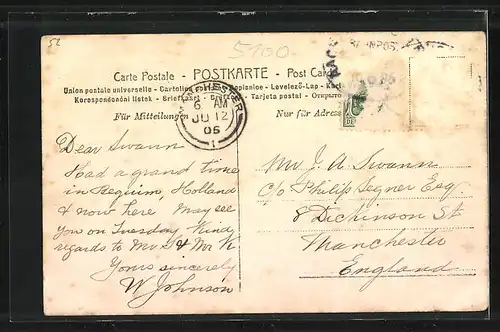 52
5100.
Carte Postale - POSTKARTE - Post Card
Union postale universelle - Cartolina
Korespondenční lístek - Briefkaart - Tarjeta postal -
Für Mitteilungen
Nur für Adresse
6 AM
JU 12
05
1
BAHNPOST
Dear Swann
Had a grand time
in Belgium, Holland
& now here May see
you on Tuesday Kind
regards to Mr S & Mr K
Yours sincerely
W Johnson
Mr J. A. Swann
C/o Philip Segner Esq
8 Dickinson St
Manchester
England